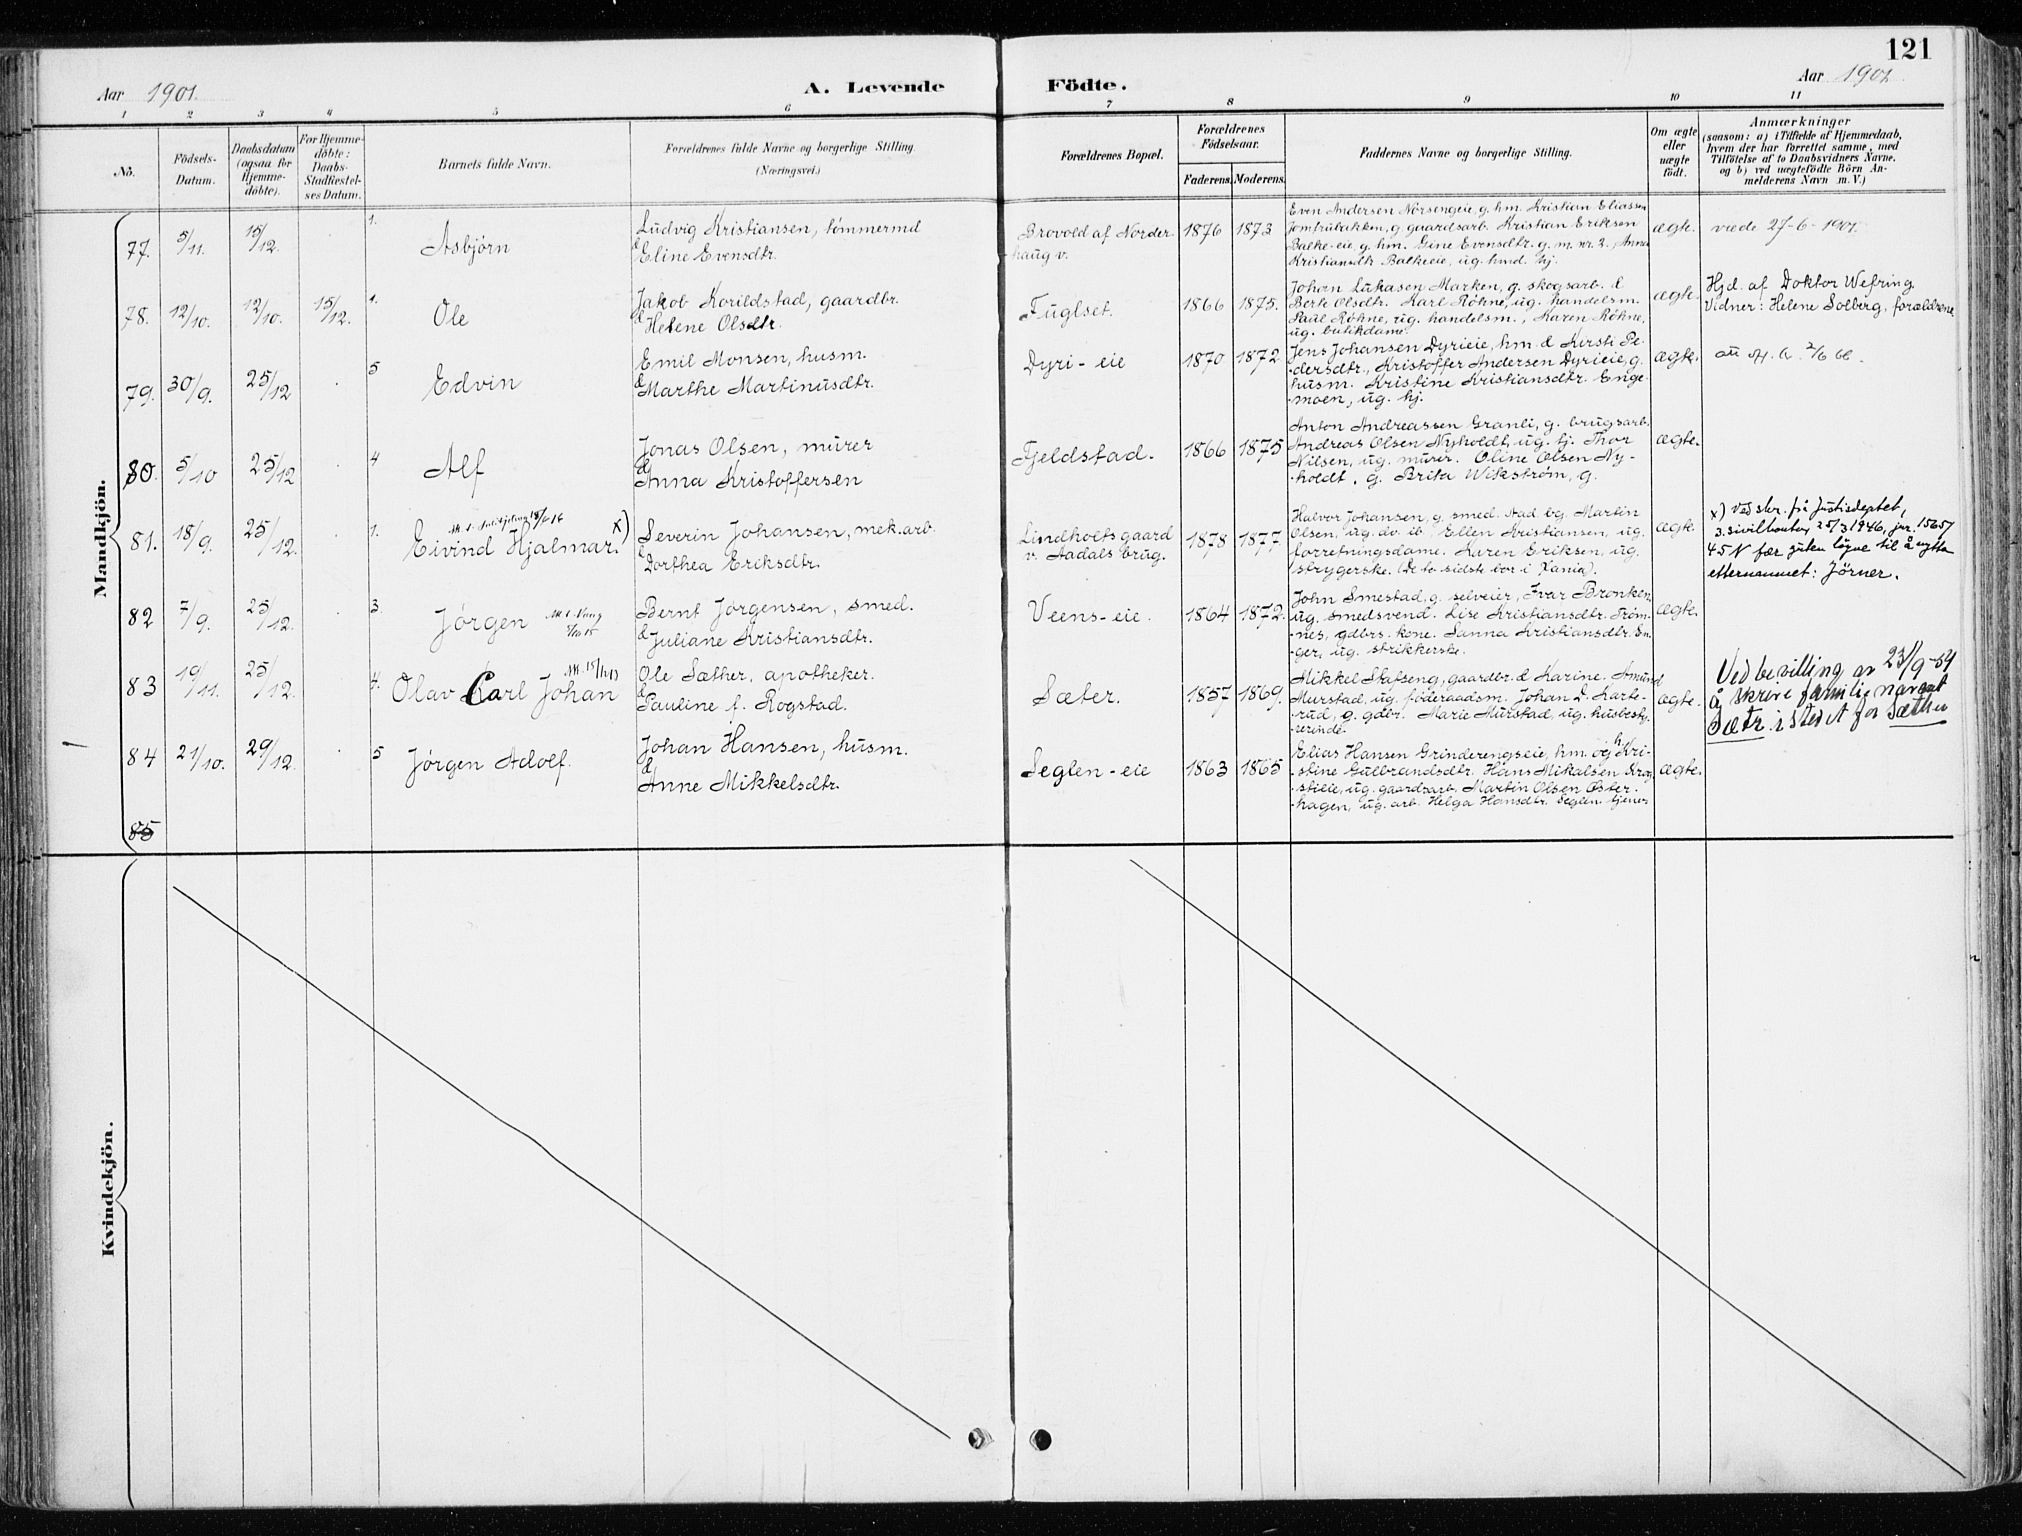 121
Aar 1901.
A. Levende Födte.
Aar 1901.
1 2 3 4 5 6 7 8 9 10 11
No.
Födsels-
Datum.
Daabsdatum
(ogsaa for
Hjemme-
döbte).
For Hjemme-
döbte:
Daabs-
Stadfæstel-
ses Datum.
Barnets fulde Navn.
Forældrenes fulde Navne og borgerlige Stilling.
(Næringsvei.)
Forældrenes Bopæl.
Forældrenes
Födselsaar.
Faderens. Moderens.
Faddernes Navne og borgerlige Stilling.
Om ægte
eller
uægte
födt.
Anmærkninger
(saasom: a) i Tilfælde af Hjemmedaab,
hvem der har forrettet samme, med
Tilföielse af to Daabsvidners Navne,
og b) ved uægtefödte Börn An-
melderens Navn m. V.)
Mandkjön.
77. 5/11. 15/12. 1. Asbjörn
Ludvig Kristiansen, tömmermd
& Eline Evensdtr.
Brovold af Norder-
haug v.
1876 1873
Even Andersen Norsengeie, g. hm. Kristian Eliassen
Jomfrubakken, g. gaardsarb. Kristian Eriksen
Balke-eie, g. hm. Gine Evensdtr. g. m. nr. 2. Anna
Kristiansdtr. Balkeeie, ug. hmd. hj.
ægte.
viede 27-6-1901.
78. 12/10. 12/10. 15/12. 1. Ole
Jakob Korildstad, gaardbr.
& Helene Olsdtr.
Fuglset.
1866 1875.
Johan Lukasen Marken, g. skogsarb. &
Berte Olsdtr. Karl Röhne, ug. handelsm.
Paul Röhne, ug. handelsm., Karen Röhne,
ug. butikdame.
ægte.
Hjd. af Doktor Wefring.
Vidner: Helene Solberg, forældrene
79. 30/9. 25/12 5 Edvin
Emil Monsen, husm.
& Marthe Martinusdtr.
Dyri-eie
1870 1872
Jens Johansen Dyrieie, hm. & Kersti Pe-
dersdtr., Kristoffer Andersen Dyrieie, g.
husm. Kristine Kristiansdtr. Enge-
moen, ug. hj.
ægte.
80. 5/10 25/12 4 Alf
Jonas Olsen, murer
& Anna Kristoffersen
Fjeldstad.
1866 1875
Anton Andreassen Granli, g. brugsarb.
Andreas Olsen Nyholdt, ug. tj. Thor
Nilsen, ug. murer. Oline Olsen Ny-
holdt, g. Brita Wikström, g.
ægte.
81. 18/9. 25/12. 1. Eivind Hjalmar. x)
Severin Johansen, mek.arb.
& Dorthea Eriksdtr.
Lindholtsgaard
v. Aadals brug.
1878 1877
Halvor Johansen, g. smed. Aad.bg. Martin
Olsen, ug. do. ib. Ellen Kristiansen, ug.
forretningsdame. Karen Eriksen, ug.
strygerske. (De to sidste bor i Xania).
ægte.
x) Ved skr. frå Justisdeptet,
3. sivilkontor 25/3 1946, jnr. 15657
45 N får guten löyve til å nytta
etternamnet: Jörner.
82 7/9. 25/12. 3. Jörgen
Bernt Jörgensen, smed.
& Juliane Kristiansdtr.
Veens-eie.
1864 1872.
John Smestad, g. selveier, Ivar Bronken,
ug. smedsvend. Lise Kristiansdtr. Tröm-
nes, gdbrs. kone. Sanna Kristiansdtr. En-
ger, ug. strikkerske.
ægte.
83 19/11. 25/12. 4. Olav Carl Johan
Ole Sæther, apotheker.
& Pauline f. Rogstad.
Sæter.
1857 1869.
Mikkel Stafseng, gaardbr. & Karine. Amund
Murstad, ug. föderaadsm. Johan L. Karte-
rud, g. gdbr. Marie Murstad, ug. husbesty-
rerinde.
ægte.
Ved bevilling av 23/9-54
å skrive familienavnet
Sætr istedet for Sæther
84 21/10. 29/12. 5 Jörgen Adolf.
Johan Hansen, husm.
& Anne Mikkelsdtr.
Seglen-eie
1863 1865
Elias Hansen Grinderengseie, hm. og h. Kri-
stine Gulbrandsdtr. Hans Mikalsen Krog-
stieie, ug. gaardsarb. Martin Olsen Öster-
hagen, ug. arb. Helga Hansdtr. Seglen. tjener
ægte.
85
Kvindekjön.